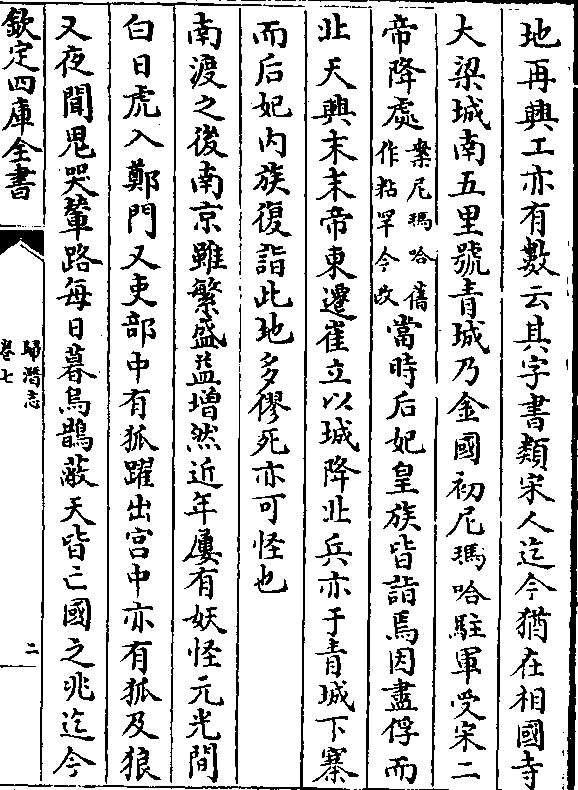 地再興工亦有數云其字書類宋人迄今猶在相國寺
大梁城南五里號青城乃金國初尼瑪哈駐軍受宋二
帝降處案尼瑪哈舊作粘罕今改當時后妃皇族皆詣焉因盡俘而
北天興末末帝東遷崔立以城降北兵亦于青城下寨
而后妃内族復詣此地多僇死亦可怪也
南渡之後南京雖繁盛益增然近年屢有妖怪元光間
白日虎入鄭門又吏部中有狐躍出宫中亦有狐及狼
又夜聞鬼哭輦路每日暮烏鵲蔽天皆亡國之兆迄今
欽定四庫全書
歸潛志
卷七
二